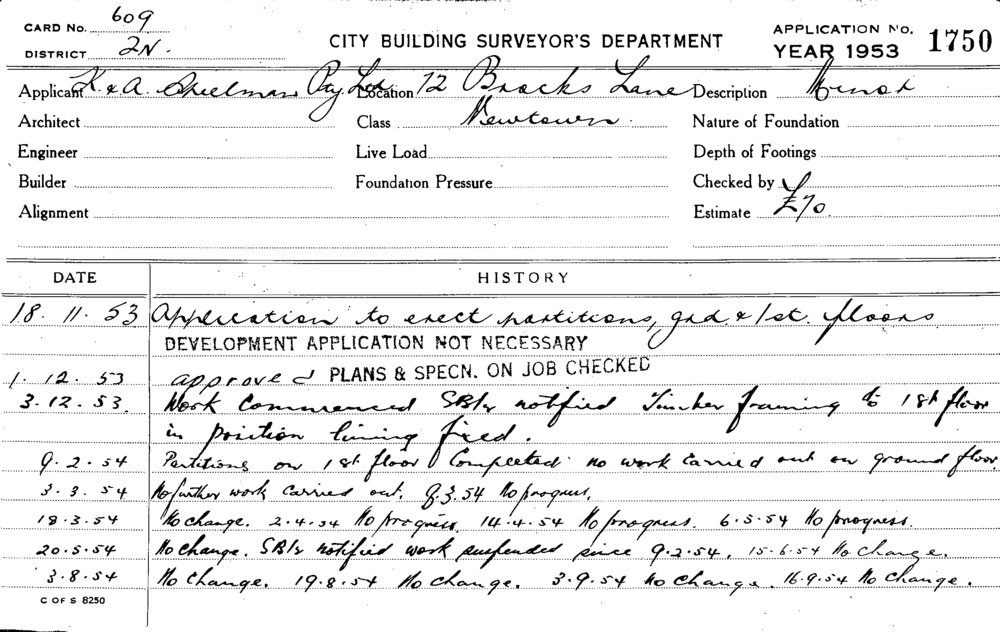 CARD No. 609
DISTRICT 2N.
CITY BUILDING SURVEYOR'S DEPARTMENT
APPLICATION No. 1750
YEAR 1953
Applicant K & A. Spielman Pty Ltd Location 72 Brocks Lane Description Minor
Architect Class Newtown. Nature of Foundation
Engineer Live Load Depth of Footings
Builder Foundation Pressure Checked by
Alignment Estimate £70.
DATE HISTORY
18. 11. 53 Application to erect partitions, grd. & 1st. floors
DEVELOPMENT APPLICATION NOT NECESSARY
1. 12. 53 approved PLANS & SPECN. ON JOB CHECKED
3. 12. 53. Work Commenced notified Timber framing to 1st floor
in position lining fixed.
9. 2. 54 Partitions on 1st floor Completed no work carried out on ground floor.
3. 3. 54 No further work carried out. 9.3.54 No progress.
18.3.54 No change. 2.4.54 No progress. 14.4.54 No progress. 6.5.54 No progress.
20.5.54 No change. notified work suspended since 9.2.54. 15.6.54 No change.
3.8.54 No Change. 19.8.54 No change. 3.9.54 No change. 16.9.54 No change.
C OF S 8250